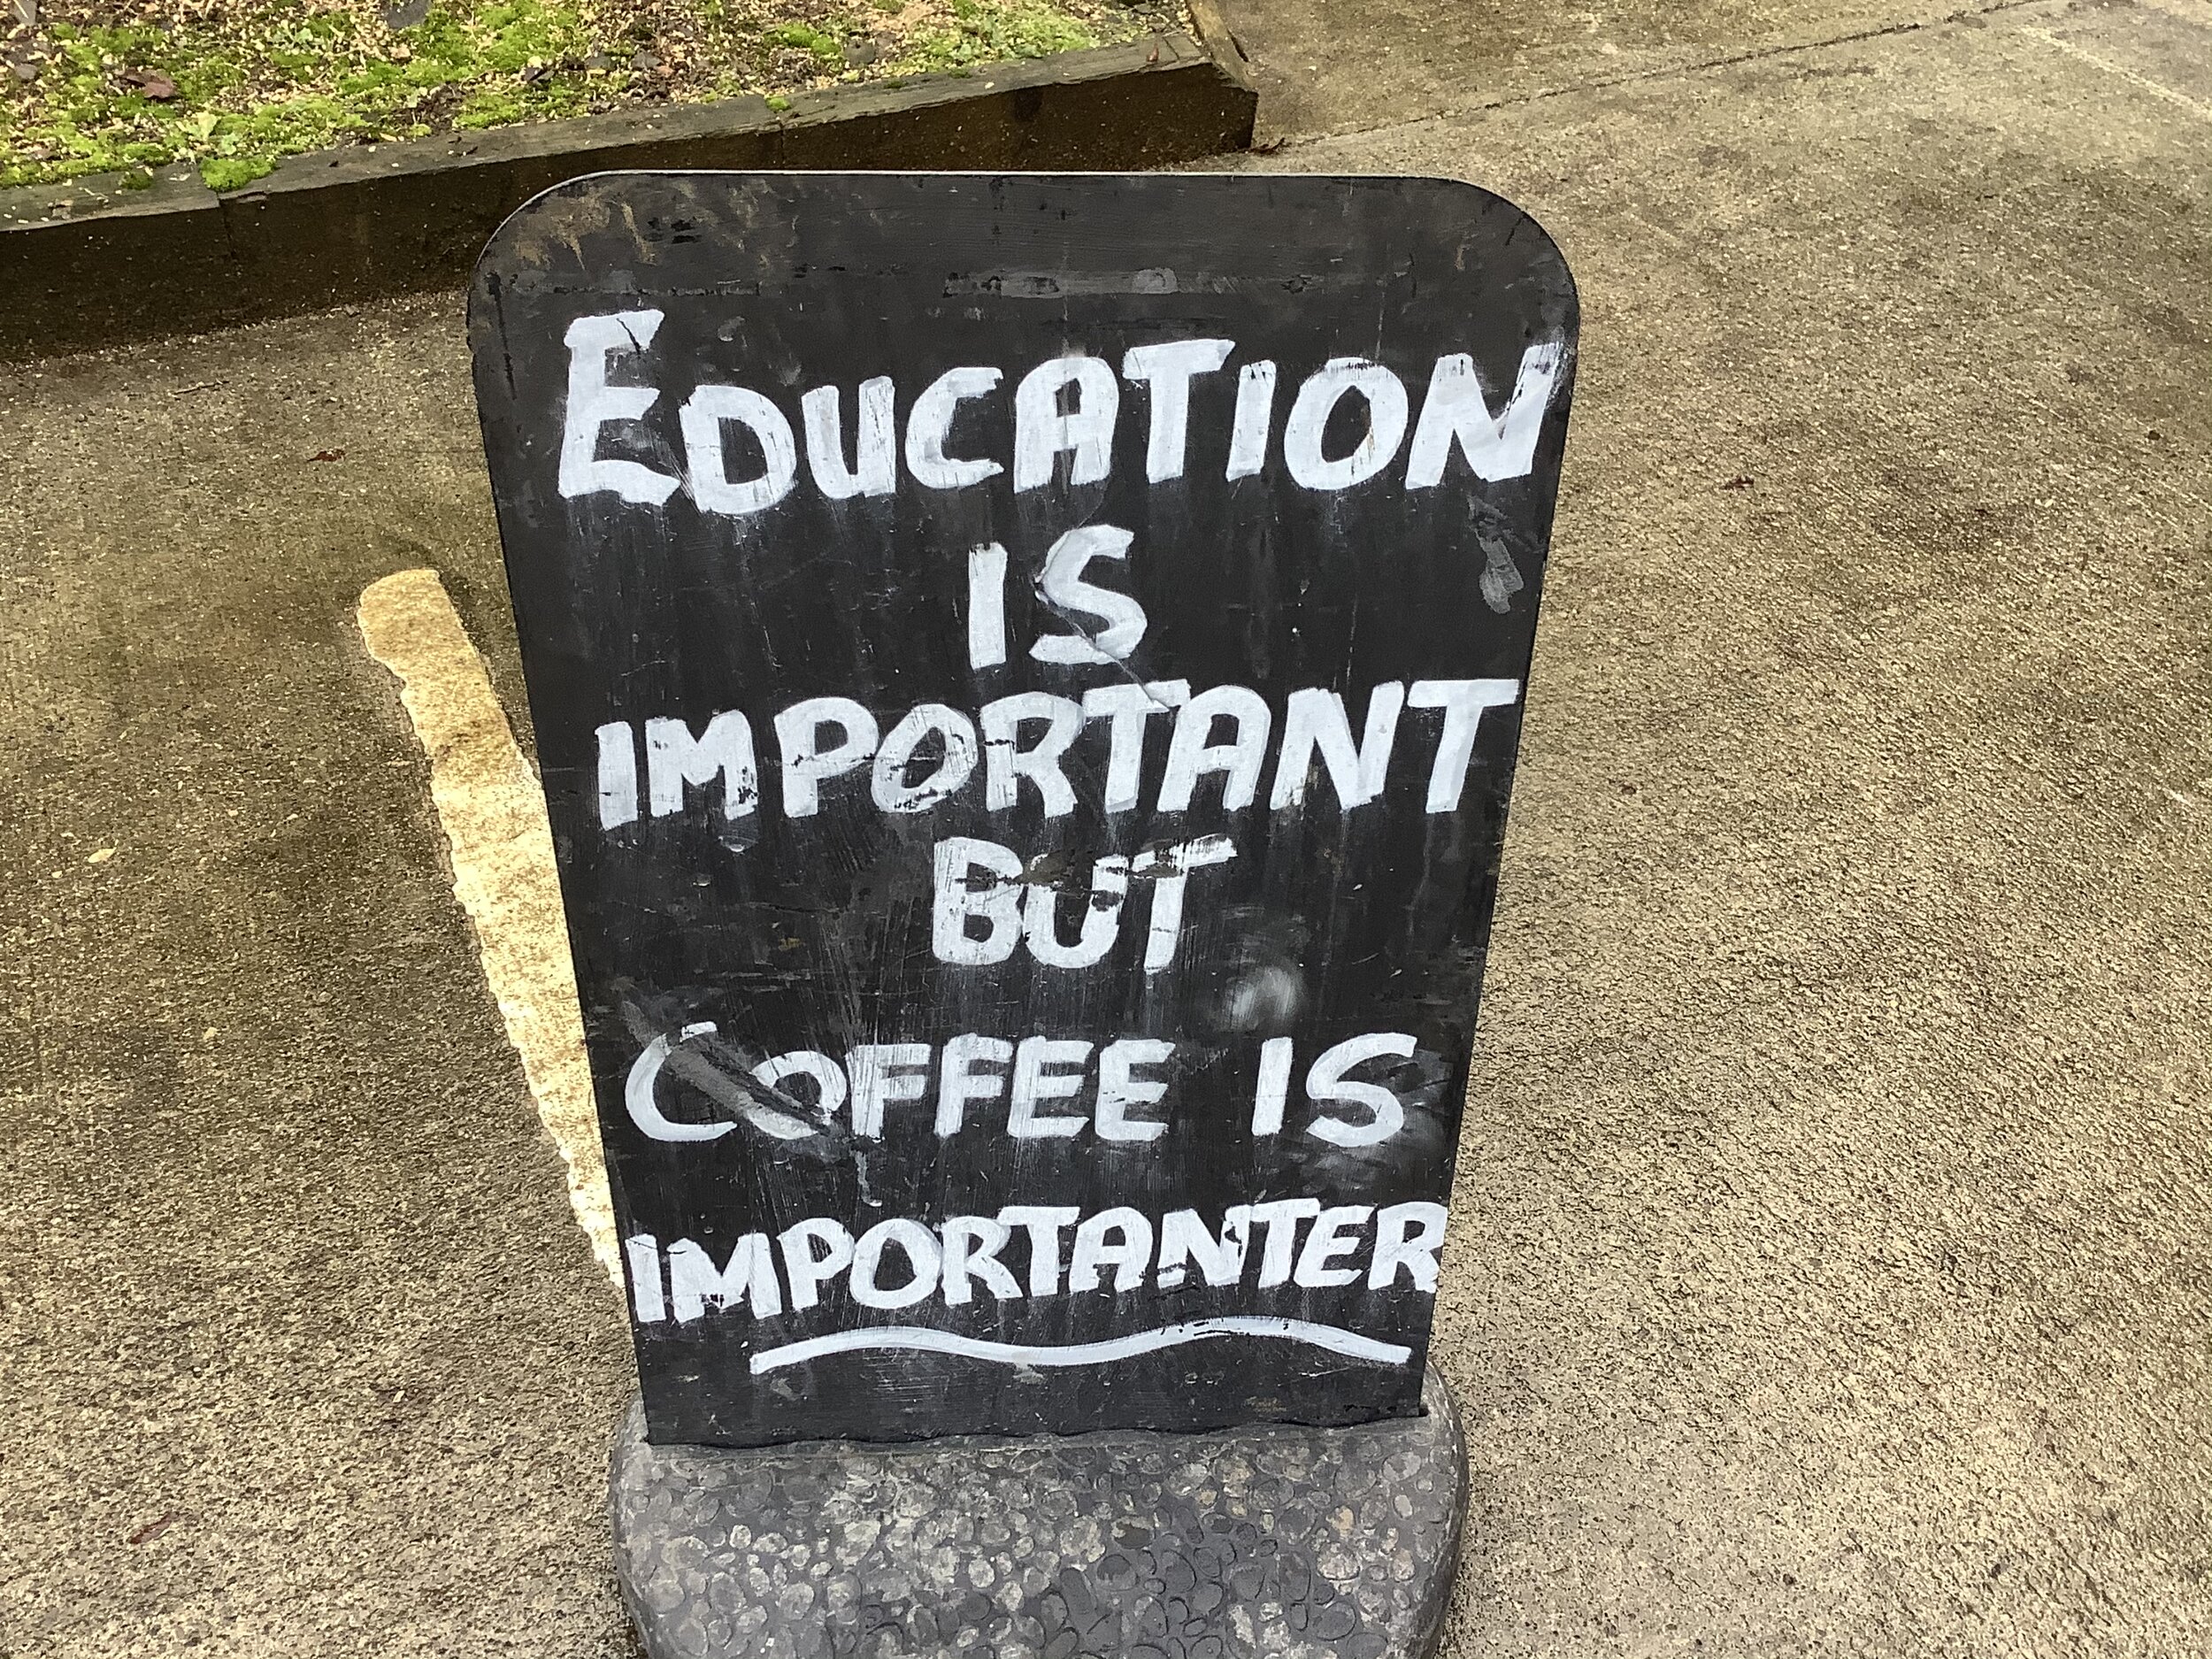 EDUCATION
IS
IMPORTANT
BUT
COFFEE IS
IMPORTANTER